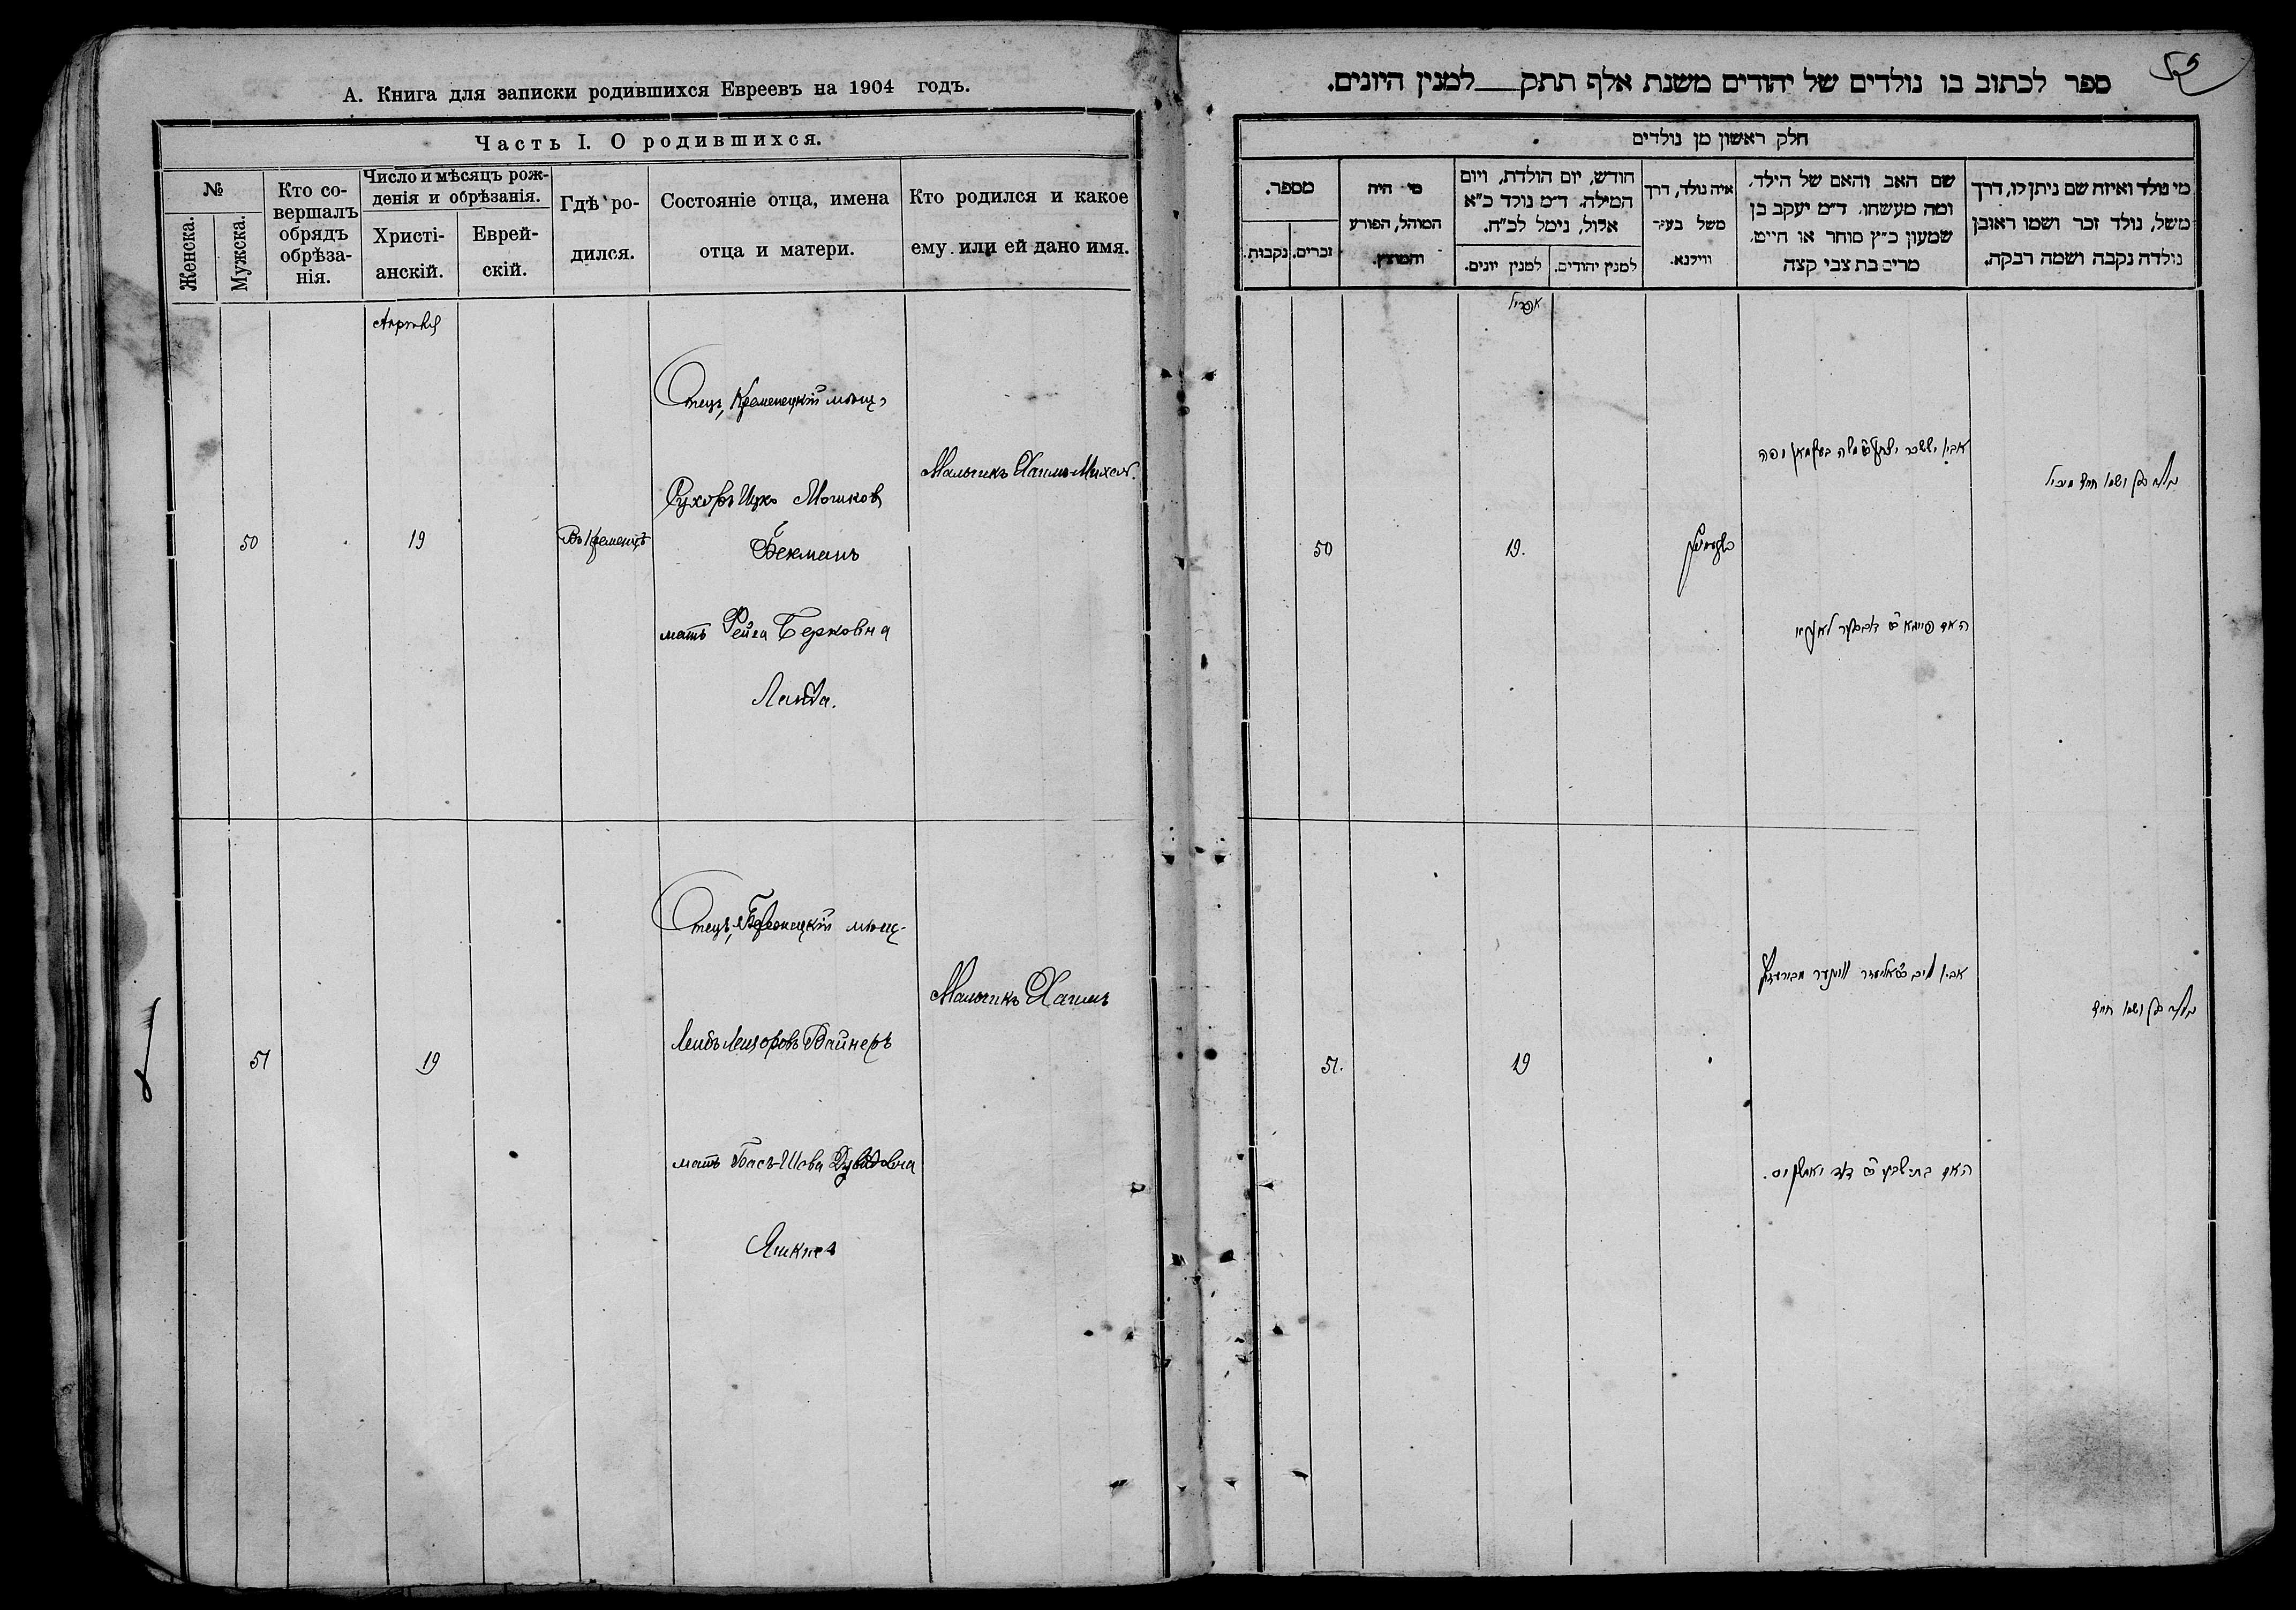 А. Книга для записки родившихся Евреевъ на 1904 годъ.
Часть I. О родившихся.
№
Женска.
Мужска.
Кто со-
вершалъ
обрядъ
обрѣза-
нія.
Число и мѣсяцъ рож-
денія и обрѣзанія.
Христі-
анскій.
Еврей-
скій.
Гдѣ ро-
дился.
Состояніе отца, имена
отца и матери.
Кто родился и какое
ему или ей дано имя.
Апрѣль
50
19
Въ Кременцѣ
Отецъ, Кременецкій мѣщ.
Ицко Мошков
Бекманъ
мать Фейга Берковна
Ланда.
Мальчикъ Хаимъ-Михель.
51
19
Отецъ, мѣщ.
Лейбъ Лейзоровъ Вайнеръ
мать Бася-Шева Дувидовна
Мальчикъ Хаимъ
ספר לכתוב בו נולדים של יהודים משנת אלף תתק למנין היונים.
חלק ראשון מן נולדים
מספר.
זכרים.
נקבות.
מי היה
המוהל, הפורע
והמוצץ.
חודש, יום הולדת, ויום
המילה. ד״מ נולד כ״א
אלול, נימל לכ״ח.
למנין יונים.
למנין יהודים.
איה נולד, דרך
משל בעיר
ווילנא.
שם האב והאם של הילד,
ומה מעשהו. ד״מ יעקב בן
שמעון כ״ץ סוחר או חייט.
מרים בת צבי קצה
מי נולד ואיזה שם ניתן לו, דרך
משל, נולד זכר ושמו ראובן
נולדה נקבה ושמה רבקה.
אפריל
50
19.
קרעמעניץ
אביו יששכר
האם פייגא
נולד בן ושמו חיים מיכל
51.
19
אביו ליב אליעזר ווינער
האם בת שבע דוד
נולד בן ושמו חיים